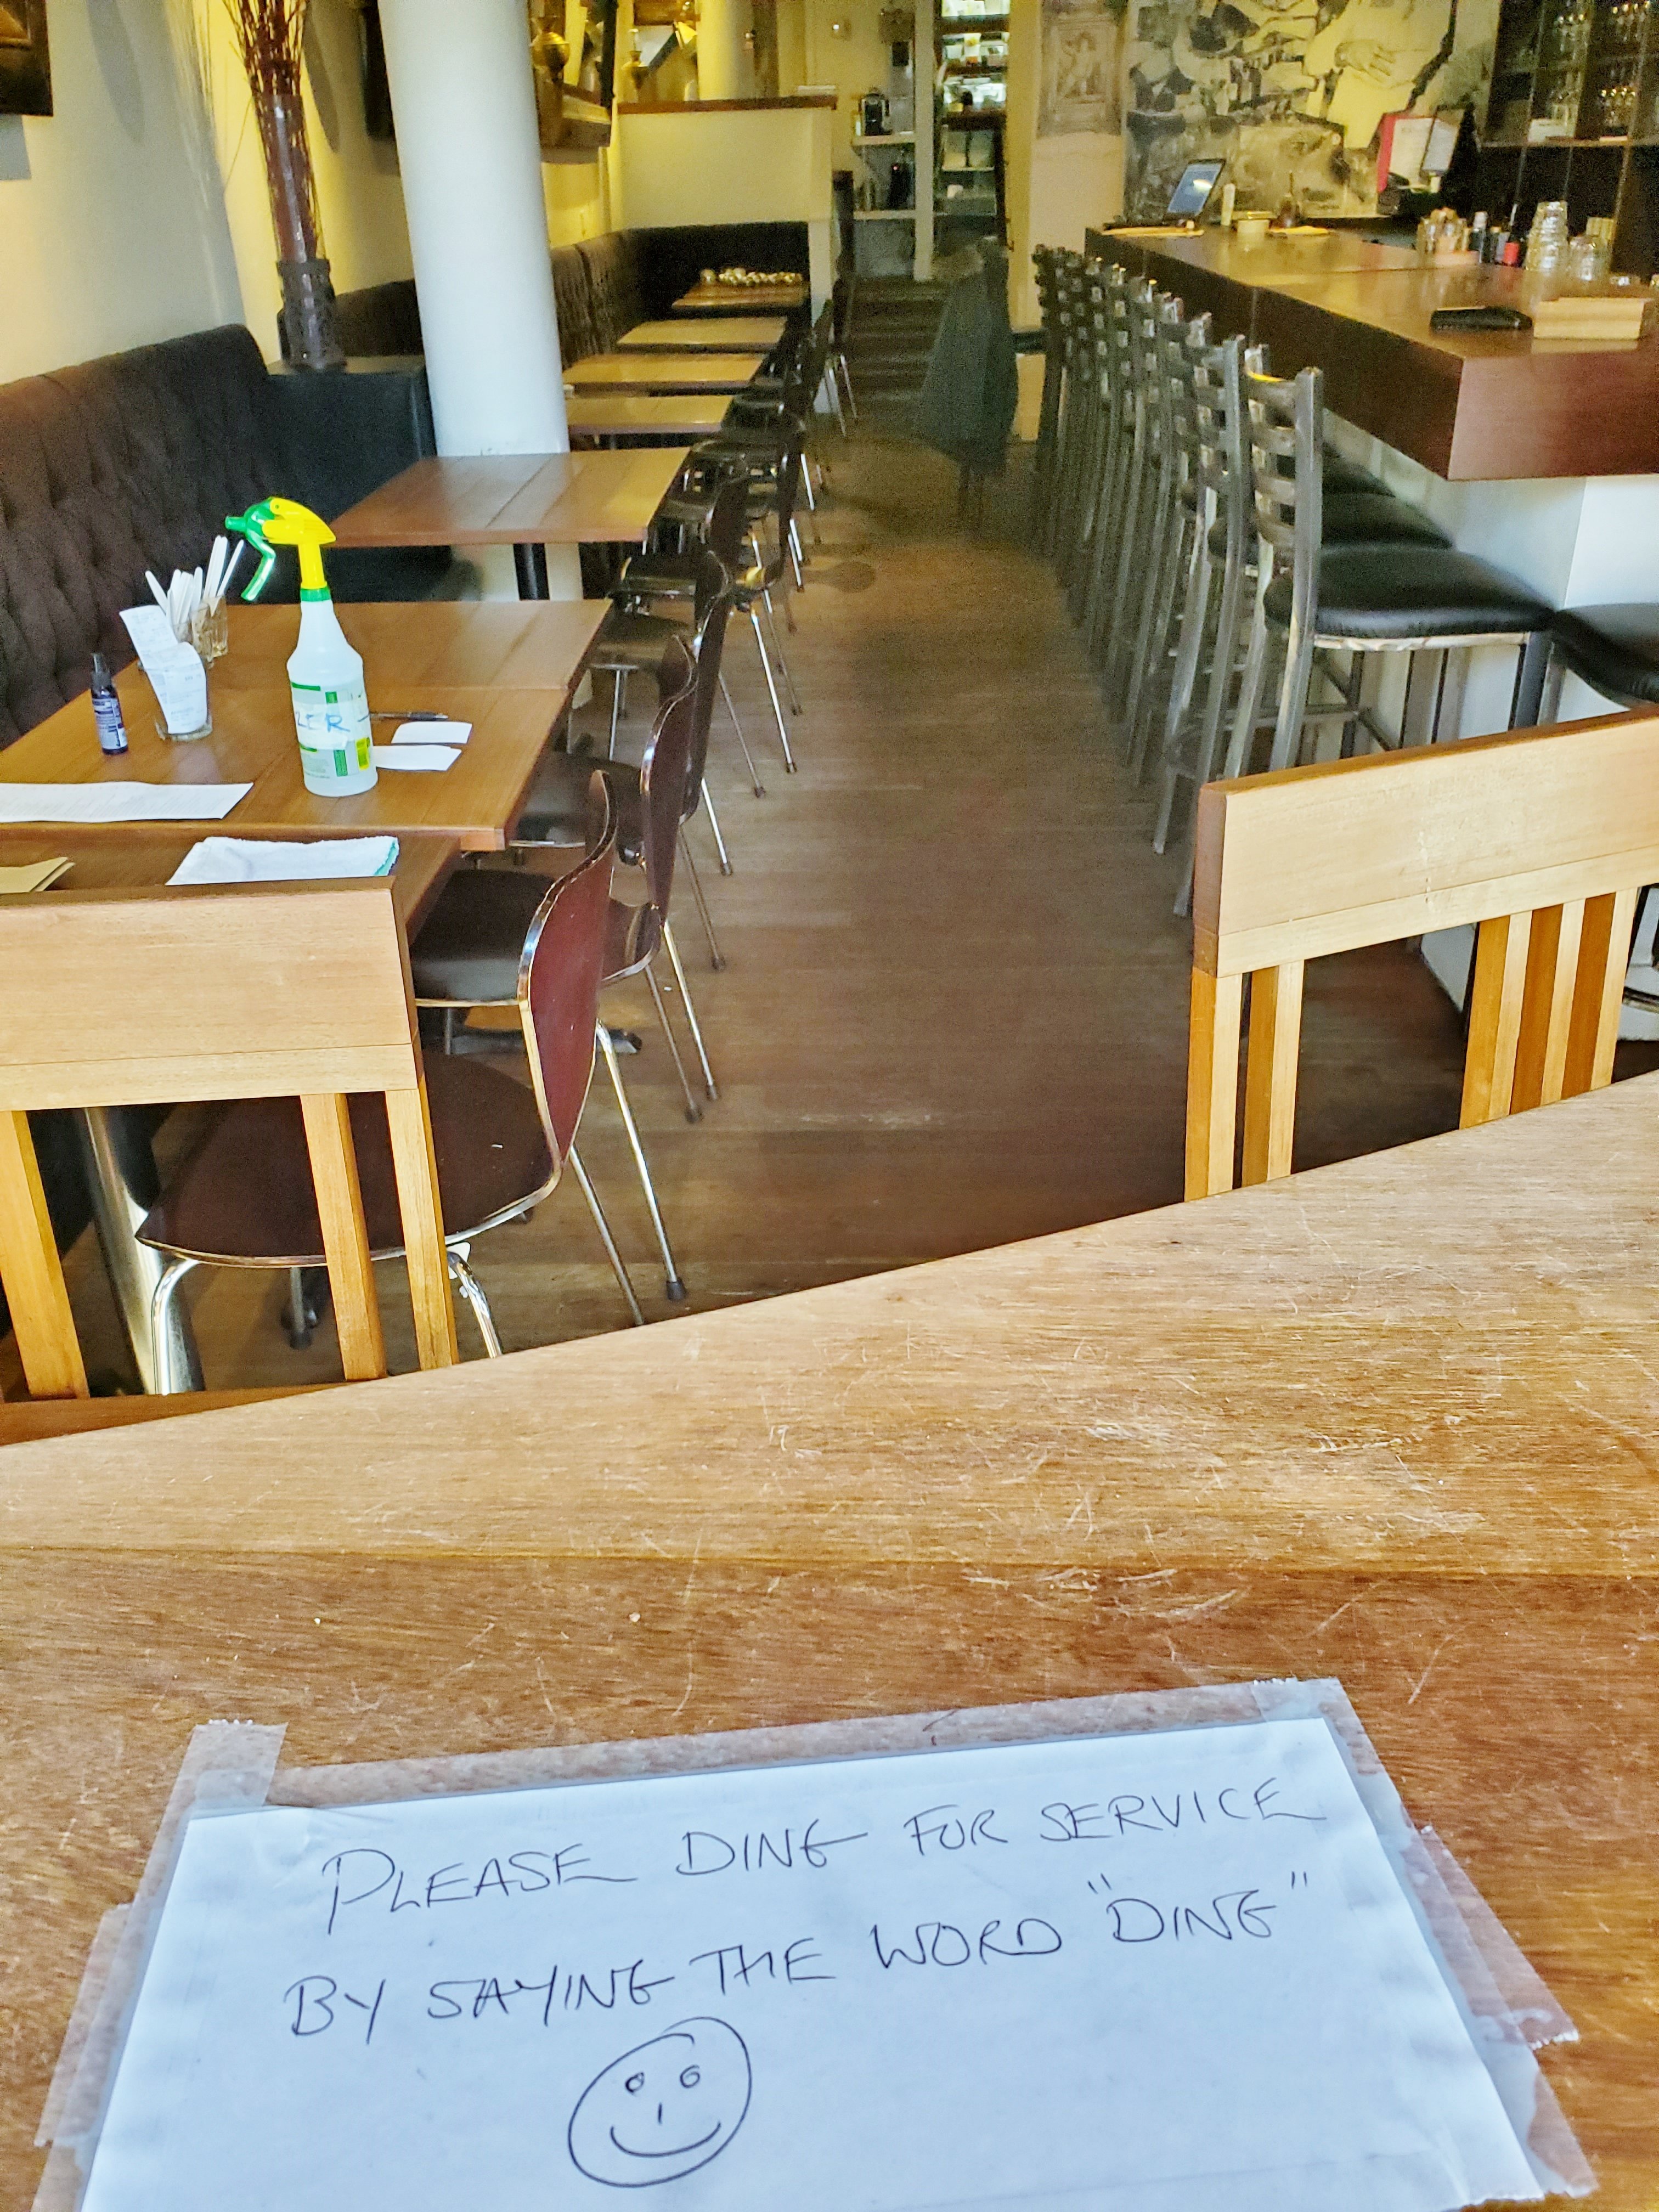 ZER
PLEASE DING FOR SERVICE
BY SAYING THE WORD "DING"